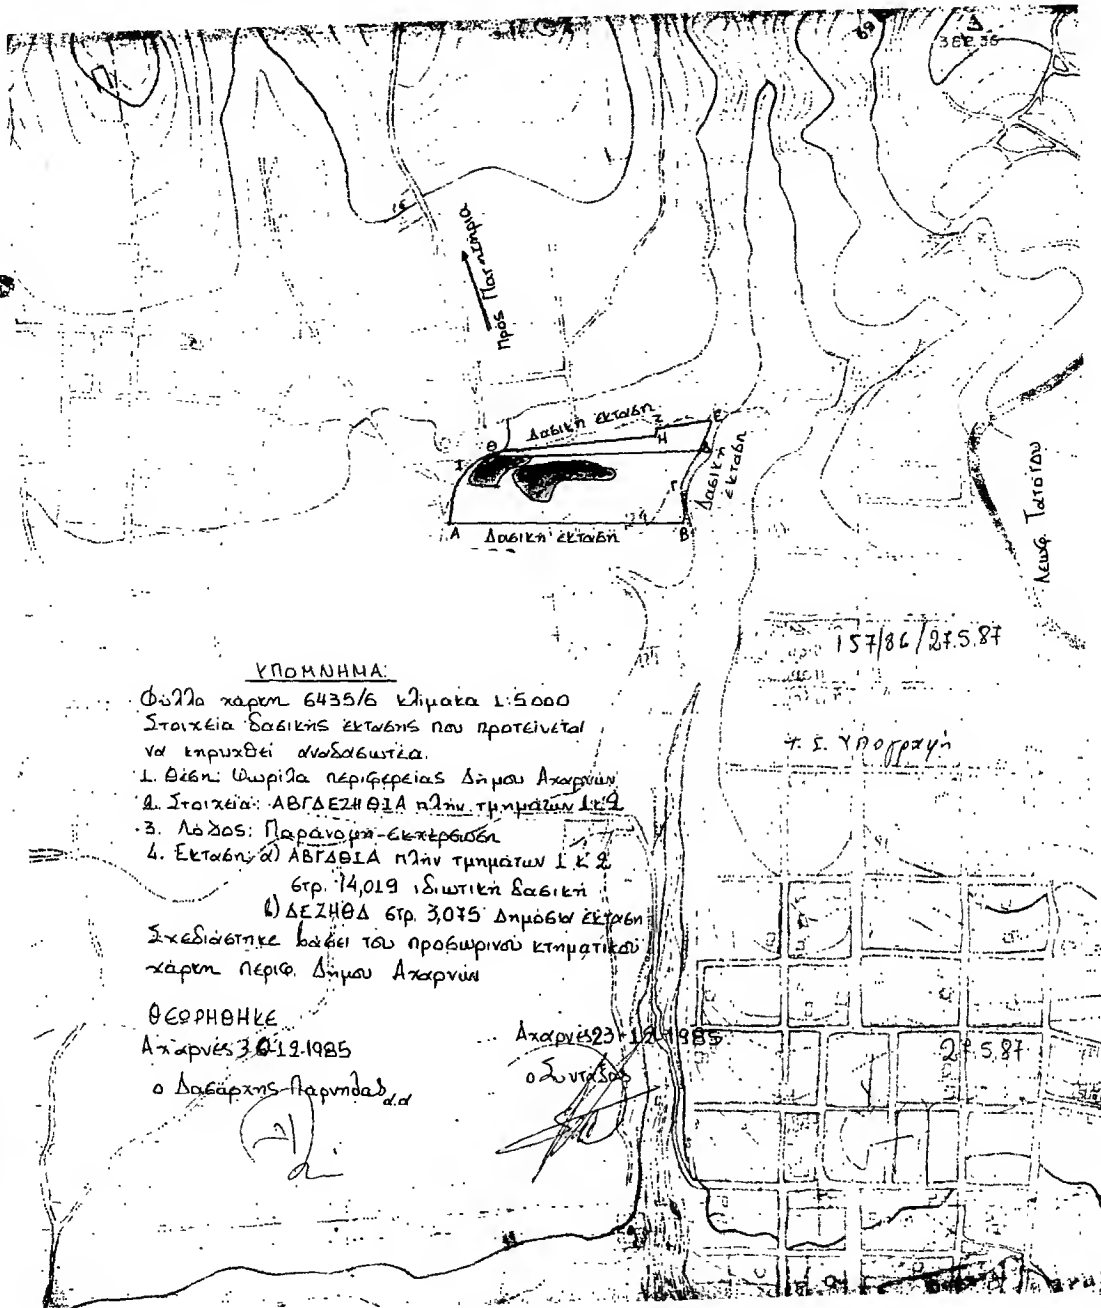 362.36
Πρός Παρνηλήρια
Δασική έκταση
Θ
Ι
Ζ
Ε
Η
Δ
Γ
Δασική έκταση
Α
Δασική έκταση
Β
Λεωφ. Τατοϊου
157/86/27.5.87
Τ. Σ. Υπογραφή
ΥΠΟΜΝΗΜΑ:
Φύλλο χάρτη 6435/6 κλίμακα 1:5000
Στοιχεία δασικής έκτασης που προτείνεται
να κηρυχθεί αναδασωτέα.
1. Θέση: Ψωρίλα περιφερείας Δήμου Αχαρνών
2. Στοιχεία: ΑΒΓΔΕΖΗΘΙΑ πλήν τμημάτων 1 κ 2
3. Λόγος: Παράνομη εκχέρσωση
4. Έκταση: α) ΑΒΓΔΘΙΑ πλήν τμημάτων 1 κ 2
στρ. 14,019 ιδιωτική δασική
β) ΔΕΖΗΘΔ στρ. 3,075 Δημόσια έκταση
Σχεδιάστηκε βάσει του προσωρινού κτηματικού
χάρτη περιφ. Δήμου Αχαρνών
ΘΕΩΡΗΘΗΚΕ
Αχαρνές 30-12-1985
ο Δασάρχης Πάρνηθας
α.α
Αχαρνές 23-12-1985
ο Συντάξας
27.5.87